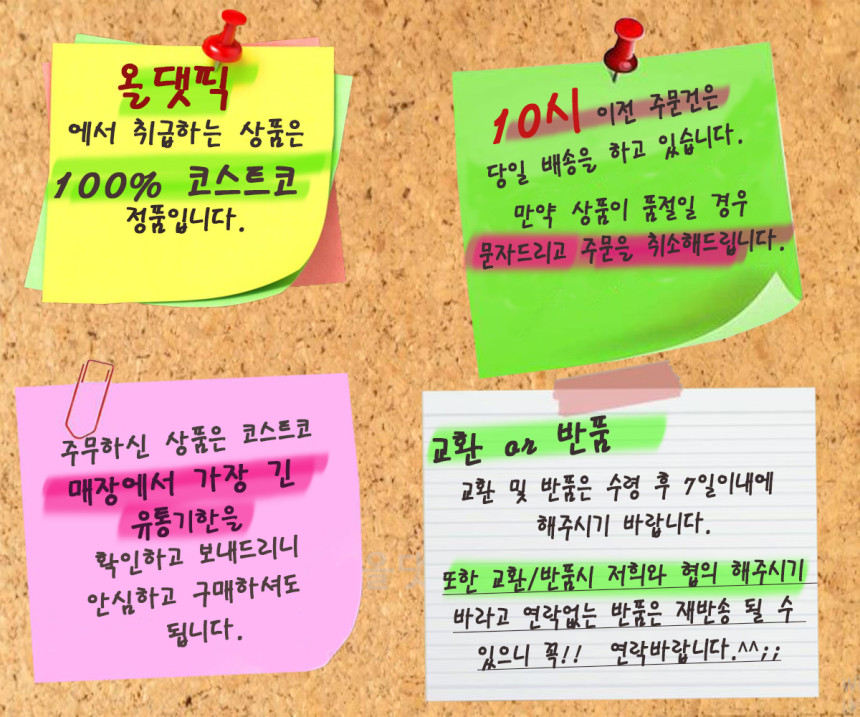 올댓픽
에서 취급하는 상품은
100% 코스트코
정품입니다.
10시 이전 주문건은
당일 배송을 하고 있습니다.
만약 상품이 품절일 경우
문자드리고 주문을 취소해드립니다.
주무하신 상품은 코스트코
매장에서 가장 긴
유통기한을
확인하고 보내드리니
안심하고 구매하셔도
됩니다.
교환 or 반품
교환 및 반품은 수령 후 7일이내에
해주시기 바랍니다.
또한 교환/반품시 저희와 협의 해주시기
바라고 연락없는 반품은 재반송 될 수
있으니 꼭!! 연락바랍니다.^^;;